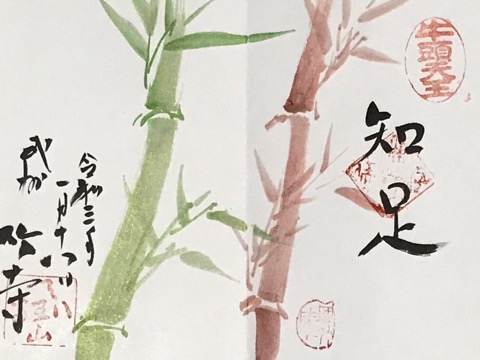 牛頭天王
知足
令和三年
一月十八日
武州 竹寺